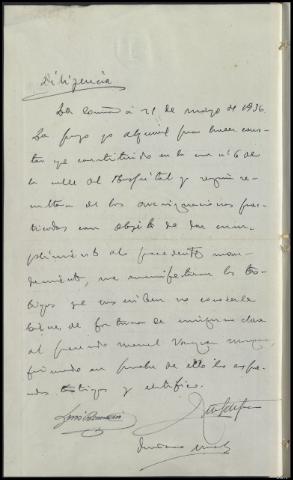 Diligencia
La Coruña á 21 de mayo de 1936
La pongo yo alguacil para hacer cons-
tar que constituido en la casa nº 6 de
la calle del Hospital y según re-
sultan de las averiguaciones prac-
ticadas con objeto de dar cum-
plimiento al precedente man-
damiento, me manifiestan los tes-
tigos que suscriben no conocerle
bienes de fortuna de ninguna clase
al procesado Manuel Vazquez
firmando en prueba de ello los expresa-
dos testigos y certifico.